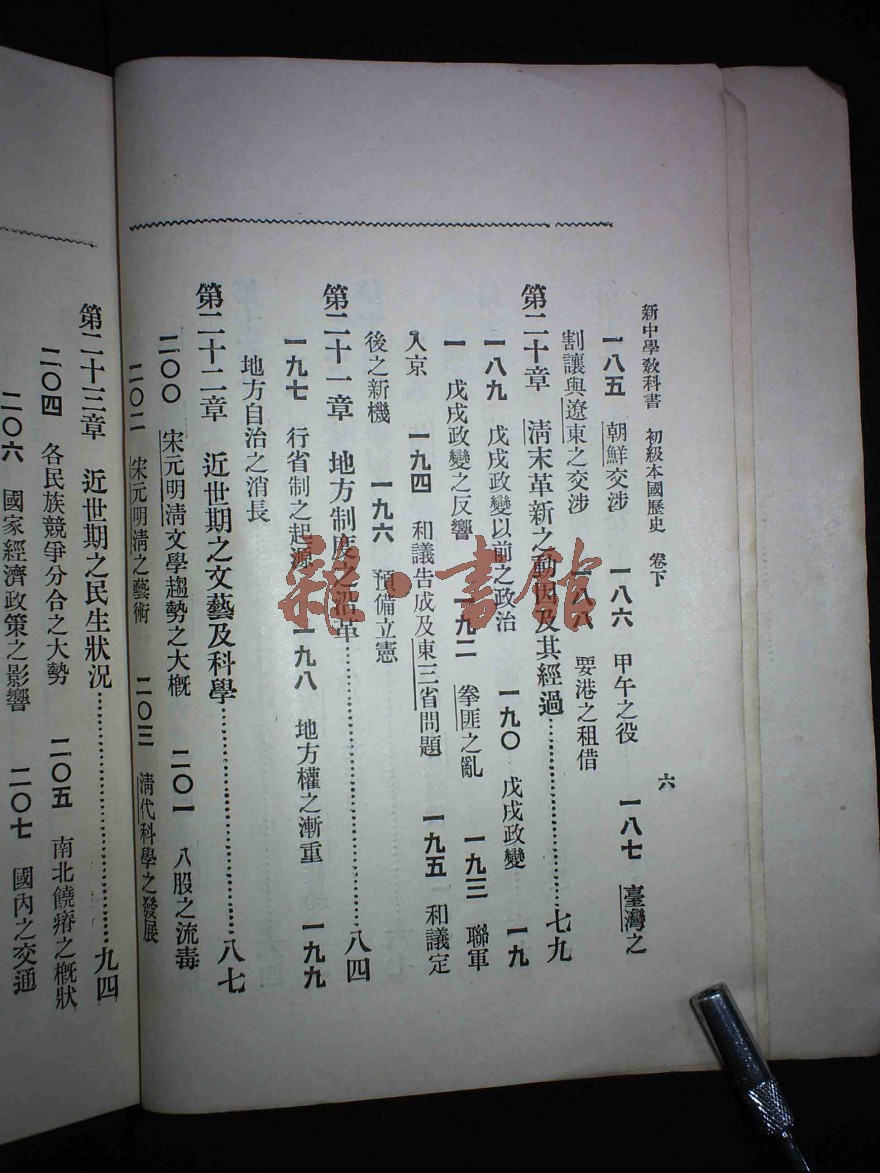 新中學敎科書　初級本國歷史　卷下　六
一八五　朝鮮交涉　一八六　甲午之役　一八七　臺灣之
割讓與遼東之交涉　一八八　要港之租借
第二十章　淸末革新之動因及其經過………………七九
一八九　戊戌政變以前之政治　一九〇　戊戌政變　一九
一　戊戌政變之反響　一九二　拳匪之亂　一九三　聯軍
入京　一九四　和議告成及東三省問題　一九五　和議定
後之新機　一九六　預備立憲
第二十一章　地方制度之沿革………………八四
一九七　行省制之起源　一九八　地方權之漸重　一九九
地方自治之消長
第二十二章　近世期之文藝及科學………………八七
二〇〇　宋元明淸文學趨勢之大槪　二〇一　八股之流毒
二〇二　宋元明淸之藝術　二〇三　淸代科學之發展
第二十三章　近世期之民生狀況………………九四
二〇四　各民族競爭分合之大勢　二〇五　南北饒瘠之槪狀
二〇六　國家經濟政策之影響　二〇七　國內之交通
雜·書館